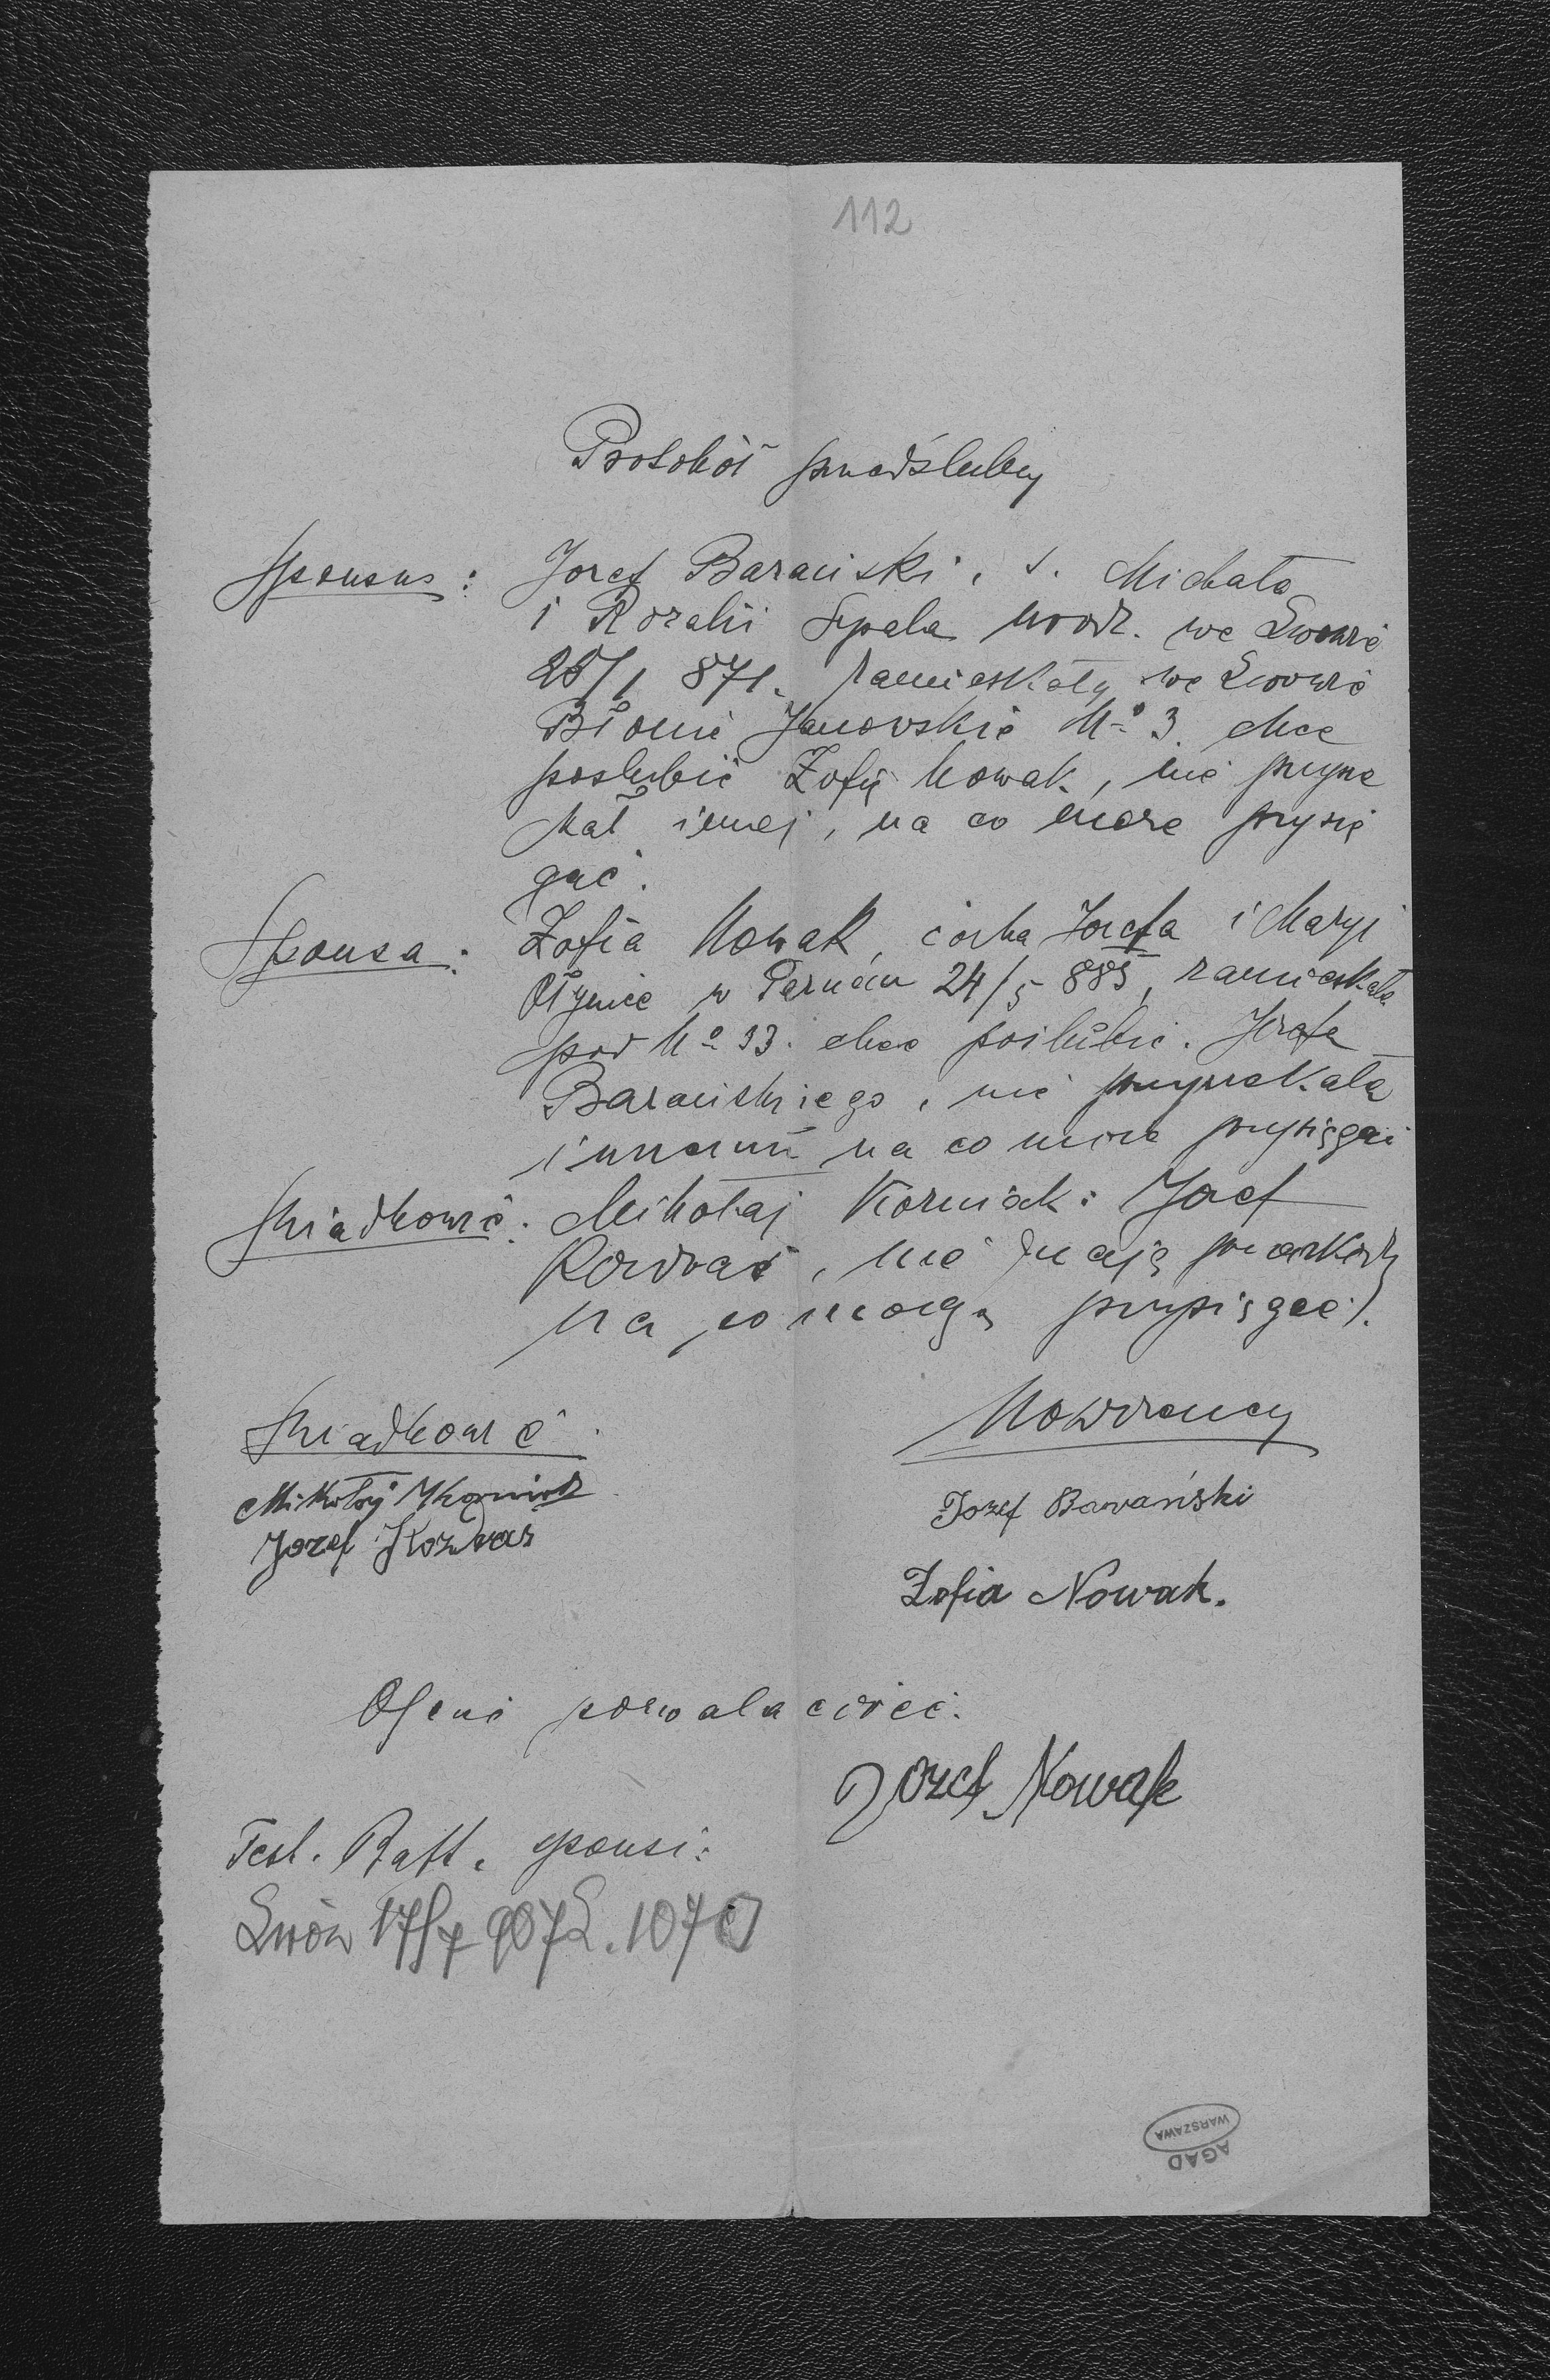 112
Protokół przedślubny
Sponsus: Józef Barański, s. Michała
i Rozalii urodz. we Lwowie
871. zamieszkały we Lwowie
Błonie Janowskie No 3. chce
poślubić Zofię Nowak, nie przyrze
kał innej, na co może przysię
gać.
Sponsa: Zofia Nowak, córka Józefa i Maryi
w 24/5 885, zamieszkała
pod No 33. chce poślubić Józefa
Barańskiego, nie przyrzekała
innemu na co może przysięgać
Świadkowie: Mikołaj Korniak i Józef
Kozdraś, nie mają przeszkody
na co mogą przysięgać.
Świadkowie Nowożeńcy
Mikołaj Korniak
Jozef Kozdraś
Józef Barański
Zofia Nowak.
Ojciec pozwala córce.
Jozef Nowak
Test. Bapt. sponsi:
Lwów 17/7 907 L. 1070
AGAD
WARSZAWA